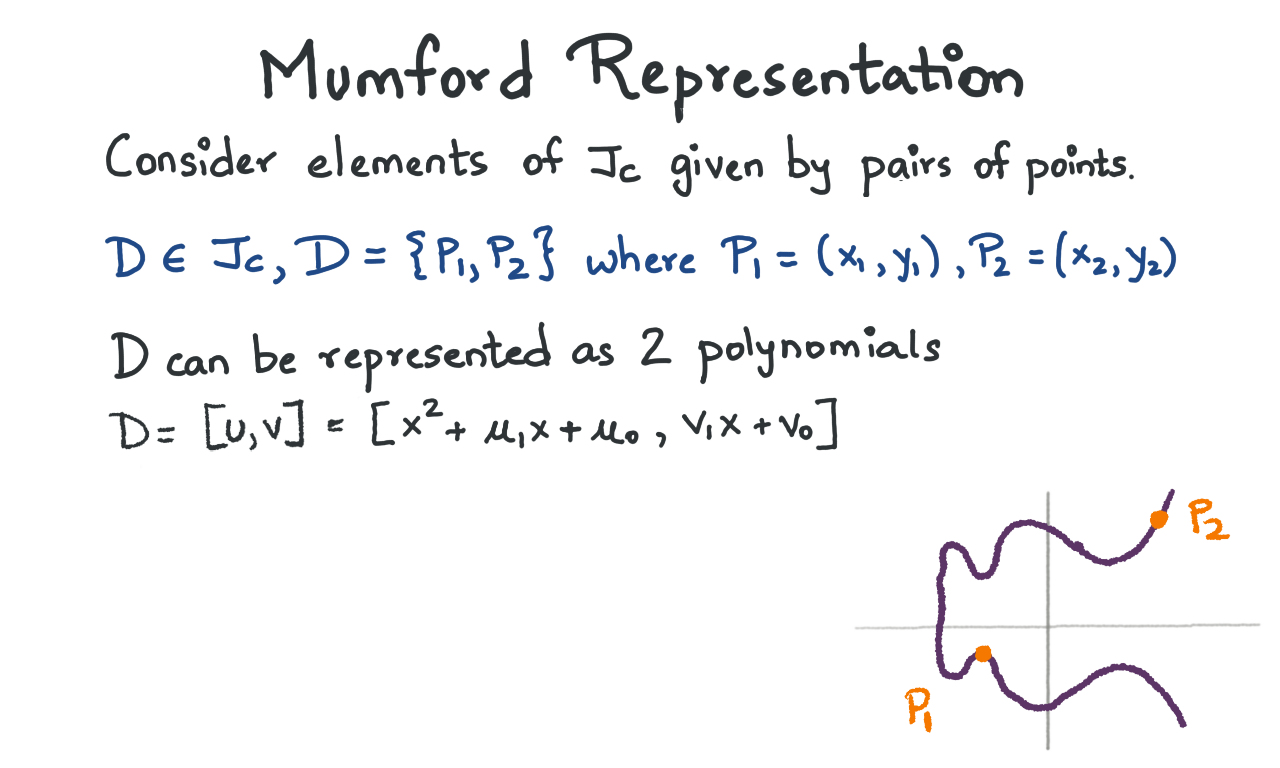 Mumford Representation
Consider elements of J_C given by pairs of points.
D ∈ J_C, D = {P₁, P₂} where P₁ = (x₁, y₁), P₂ = (x₂, y₂)
D can be represented as 2 polynomials
D = [u, v] = [x² + μ₁x + μ₀, v₁x + v₀]
P₂
P₁